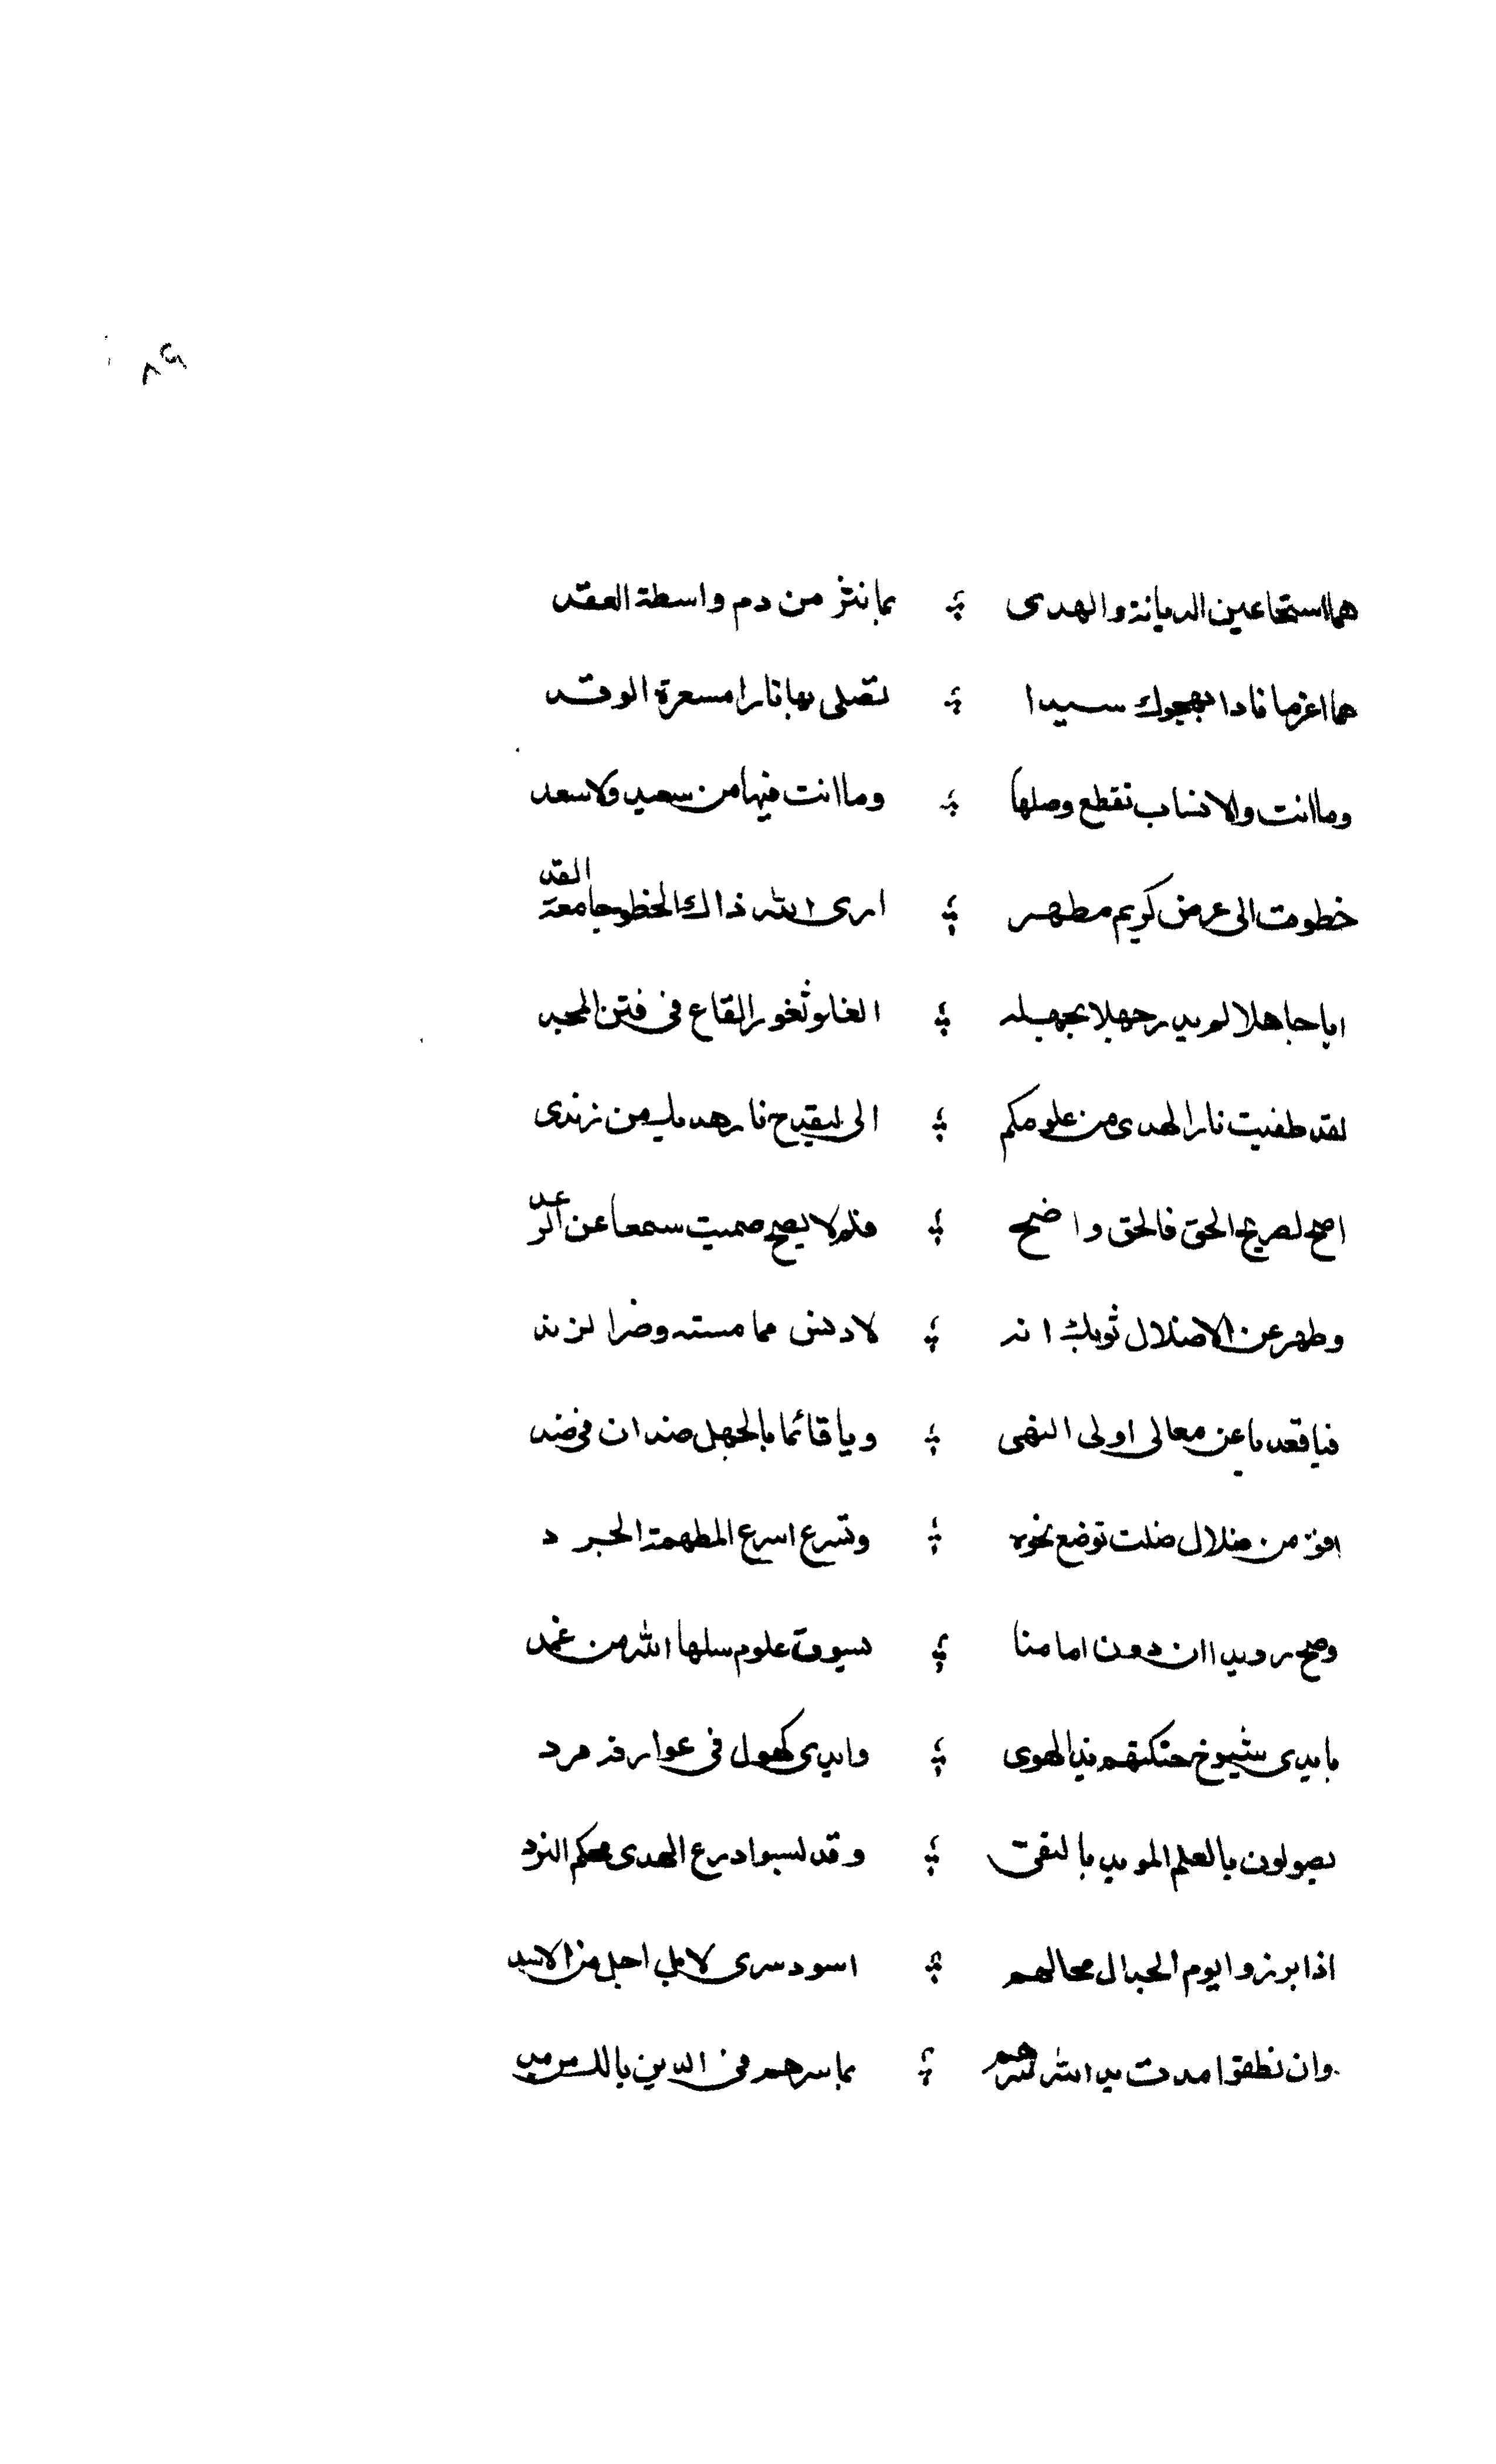 ٨٩
هما استحاعين الديانة والهدى بما نثر من دم واسطة العقد
هما اغرما فادا بهجوك سيدا لتصلى بها نارا مسعرة الوقد
وما انت والانساب تقطع وصلها وما انت فيها من سعيد ولا سعد
خطوت الى عرض كريم مطهر ارى الله ذاك الخطو جامعة القد
ايا جاهلا لم يدر جهلا بجهله العالو ثغور القاع فى فتن المجد
لقد طفيت نار الهدى من علومكم الى ليقدح نار هديك من زندى
اصح لصريح الحق فالحق واضح فلم لا يصح صميت سمعا عن الرعد
وطهر عن الاضلال ثوبك انه لادنس مما مسته وضر الزند
فيا قعدا عن معالى اولى النهى ويا قائما بالجهل ضدان فى ضد
افق من ضلال ضلت توضع نحوه وتسرع اسرع المطهمة الجرد
وصح رويدا ان دون امامنا سيوف علوم سلها الله من غمد
بايدى شيوخ حنكتهم يد الهوى وايدى كهول فى عوارفه مرد
يصولون بالعلم المويد بالتقى وقد لبسوا درع الهدى محكم السرد
اذا برزوا يوم الجدال مجالهم اسود سرى لا بل اجل من الاسد
وان نطقوا مدت يد الله سرهم بما سرهم فى الدين باللـ من مد